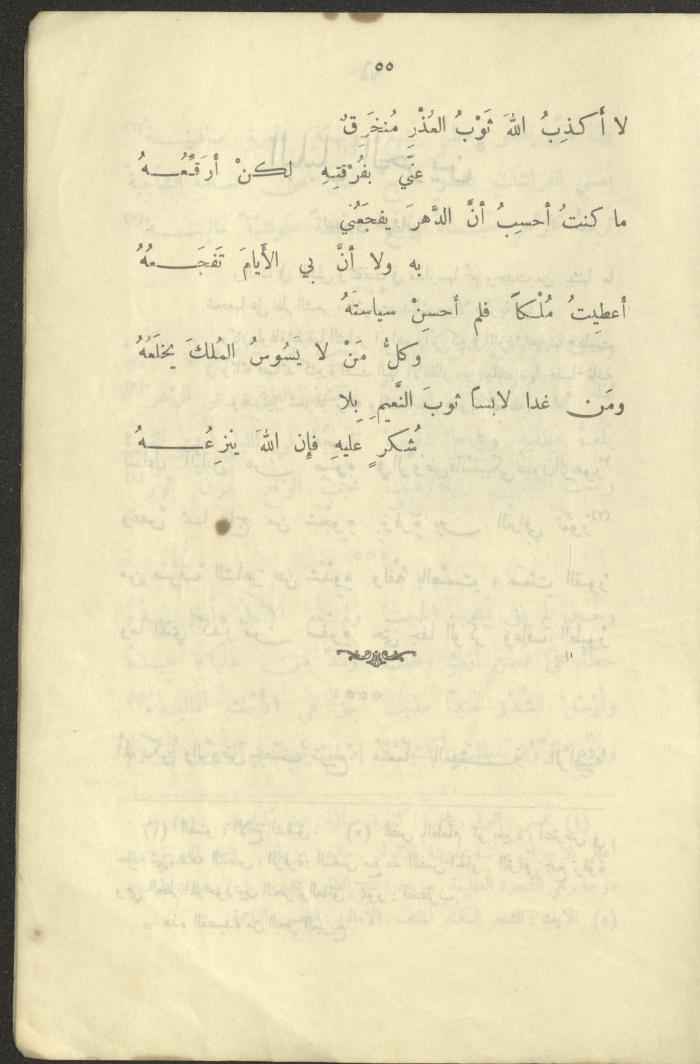 ٥٥
لا أكذِبُ اللهَ ثَوْبُ العُذْرِ مُنخَرَقٌ
عَنَّي بفُرْقتِهِ لكنْ أرَقِّعُهُ
ما كنتُ أحسِبُ أنَّ الدَّهرَ يفجَعُني
به ولا أنَّ بي الأَيامَ تَفجَعُهُ
أعطِيتُ مُلْكاً فلم أحسِنْ سياستَهُ
وكلُّ مَنْ لا يَسُوسُ المُلكَ يخلَعُهُ
ومَن غدا لابساً ثوبَ النَّعيمِ بِلا
شُكرٍ عليهِ فإِن اللهَ ينزِعُهُ